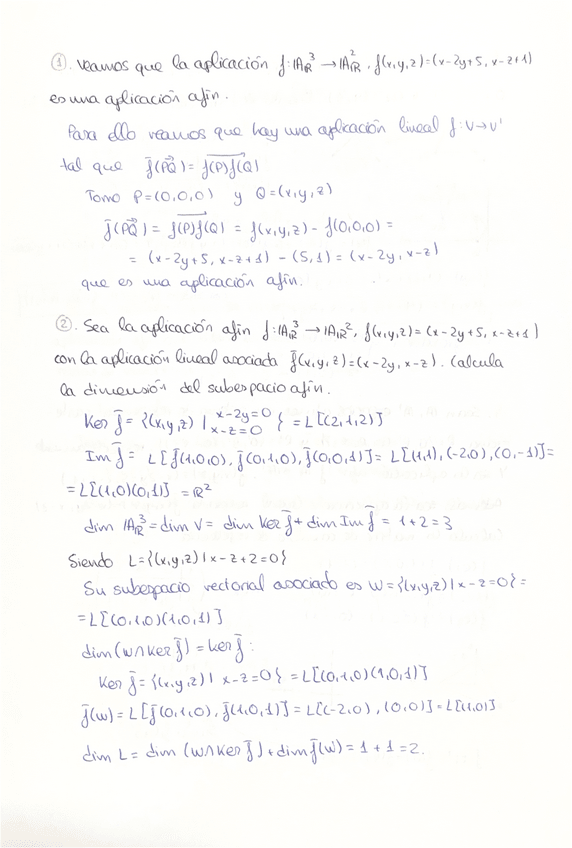 ①. Veamos que la aplicación f: 𝔸ℝ³ → 𝔸ℝ², f(x,y,z)=(x-2y+5, x-z+1)
es una aplicación afín.
Para ello veamos que hay una aplicación lineal f: V→V'
tal que f̄(PQ⃗) = f(P)f(Q)
Tomo P=(0,0,0) y Q=(x,y,z)
f̄(PQ⃗) = f(P)f(Q) = f(x,y,z) - f(0,0,0) =
= (x-2y+5, x-z+1) - (5,1) = (x-2y, x-z)
que es una aplicación afín.
②. Sea la aplicación afín f: 𝔸ℝ³ → 𝔸ℝ², f(x,y,z)=(x-2y+5, x-z+1)
con la aplicación lineal asociada f̄(x,y,z)=(x-2y, x-z). Calcula
la dimensión del subespacio afín.
Ker f̄ = {(x,y,z) | x-2y=0 x-z=0} = L[(2,1,2)]
Im f̄ = L[f̄(1,0,0), f̄(0,1,0), f̄(0,0,1)] = L[(1,1), (-2,0), (0,-1)] =
= L[(1,0)(0,1)] = ℝ²
dim 𝔸ℝ³ = dim V = dim Ker f̄ + dim Im f̄ = 1+2=3
Siendo L={(x,y,z) | x-z+2=0}
Su subespacio vectorial asociado es W={(x,y,z) | x-z=0} =
= L[(0,1,0)(1,0,1)]
dim(W∩Ker f̄) = Ker f̄:
Ker f̄ = {(x,y,z) | x-z=0} = L[(0,1,0)(1,0,1)]
f̄(W) = L[f̄(0,1,0), f̄(1,0,1)] = L[(-2,0), (1,0)] = L[(1,0)]
dim L = dim (W∩Ker f̄) + dim f̄(W) = 1+1=2.